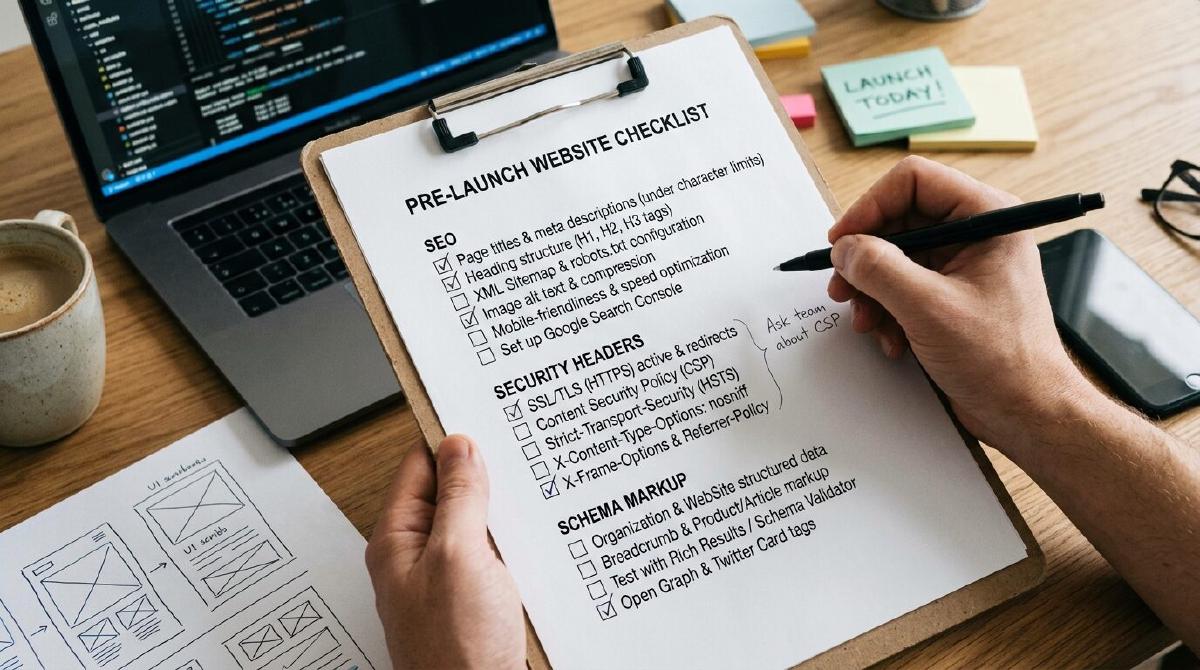 LAUNCH
TODAY!
PRE-LAUNCH WEBSITE CHECKLIST
SEO
Page titles & meta descriptions (under character limits)
Heading structure (H1, H2, H3 tags)
XML Sitemap & robots.txt configuration
Image alt text & compression
Mobile-friendliness & speed optimization
Set up Google Search Console
SECURITY HEADERS
SSL/TLS (HTTPS) active & redirects
Content Security Policy (CSP)
Strict-Transport-Security (HSTS)
X-Content-Type-Options: nosniff
X-Frame-Options & Referrer-Policy
Ask team
about CSP
SCHEMA MARKUP
Organization & WebSite structured data
Breadcrumb & Product/Article markup
Test with Rich Results / Schema Validator
Open Graph & Twitter Card tags
UI
UI scribb